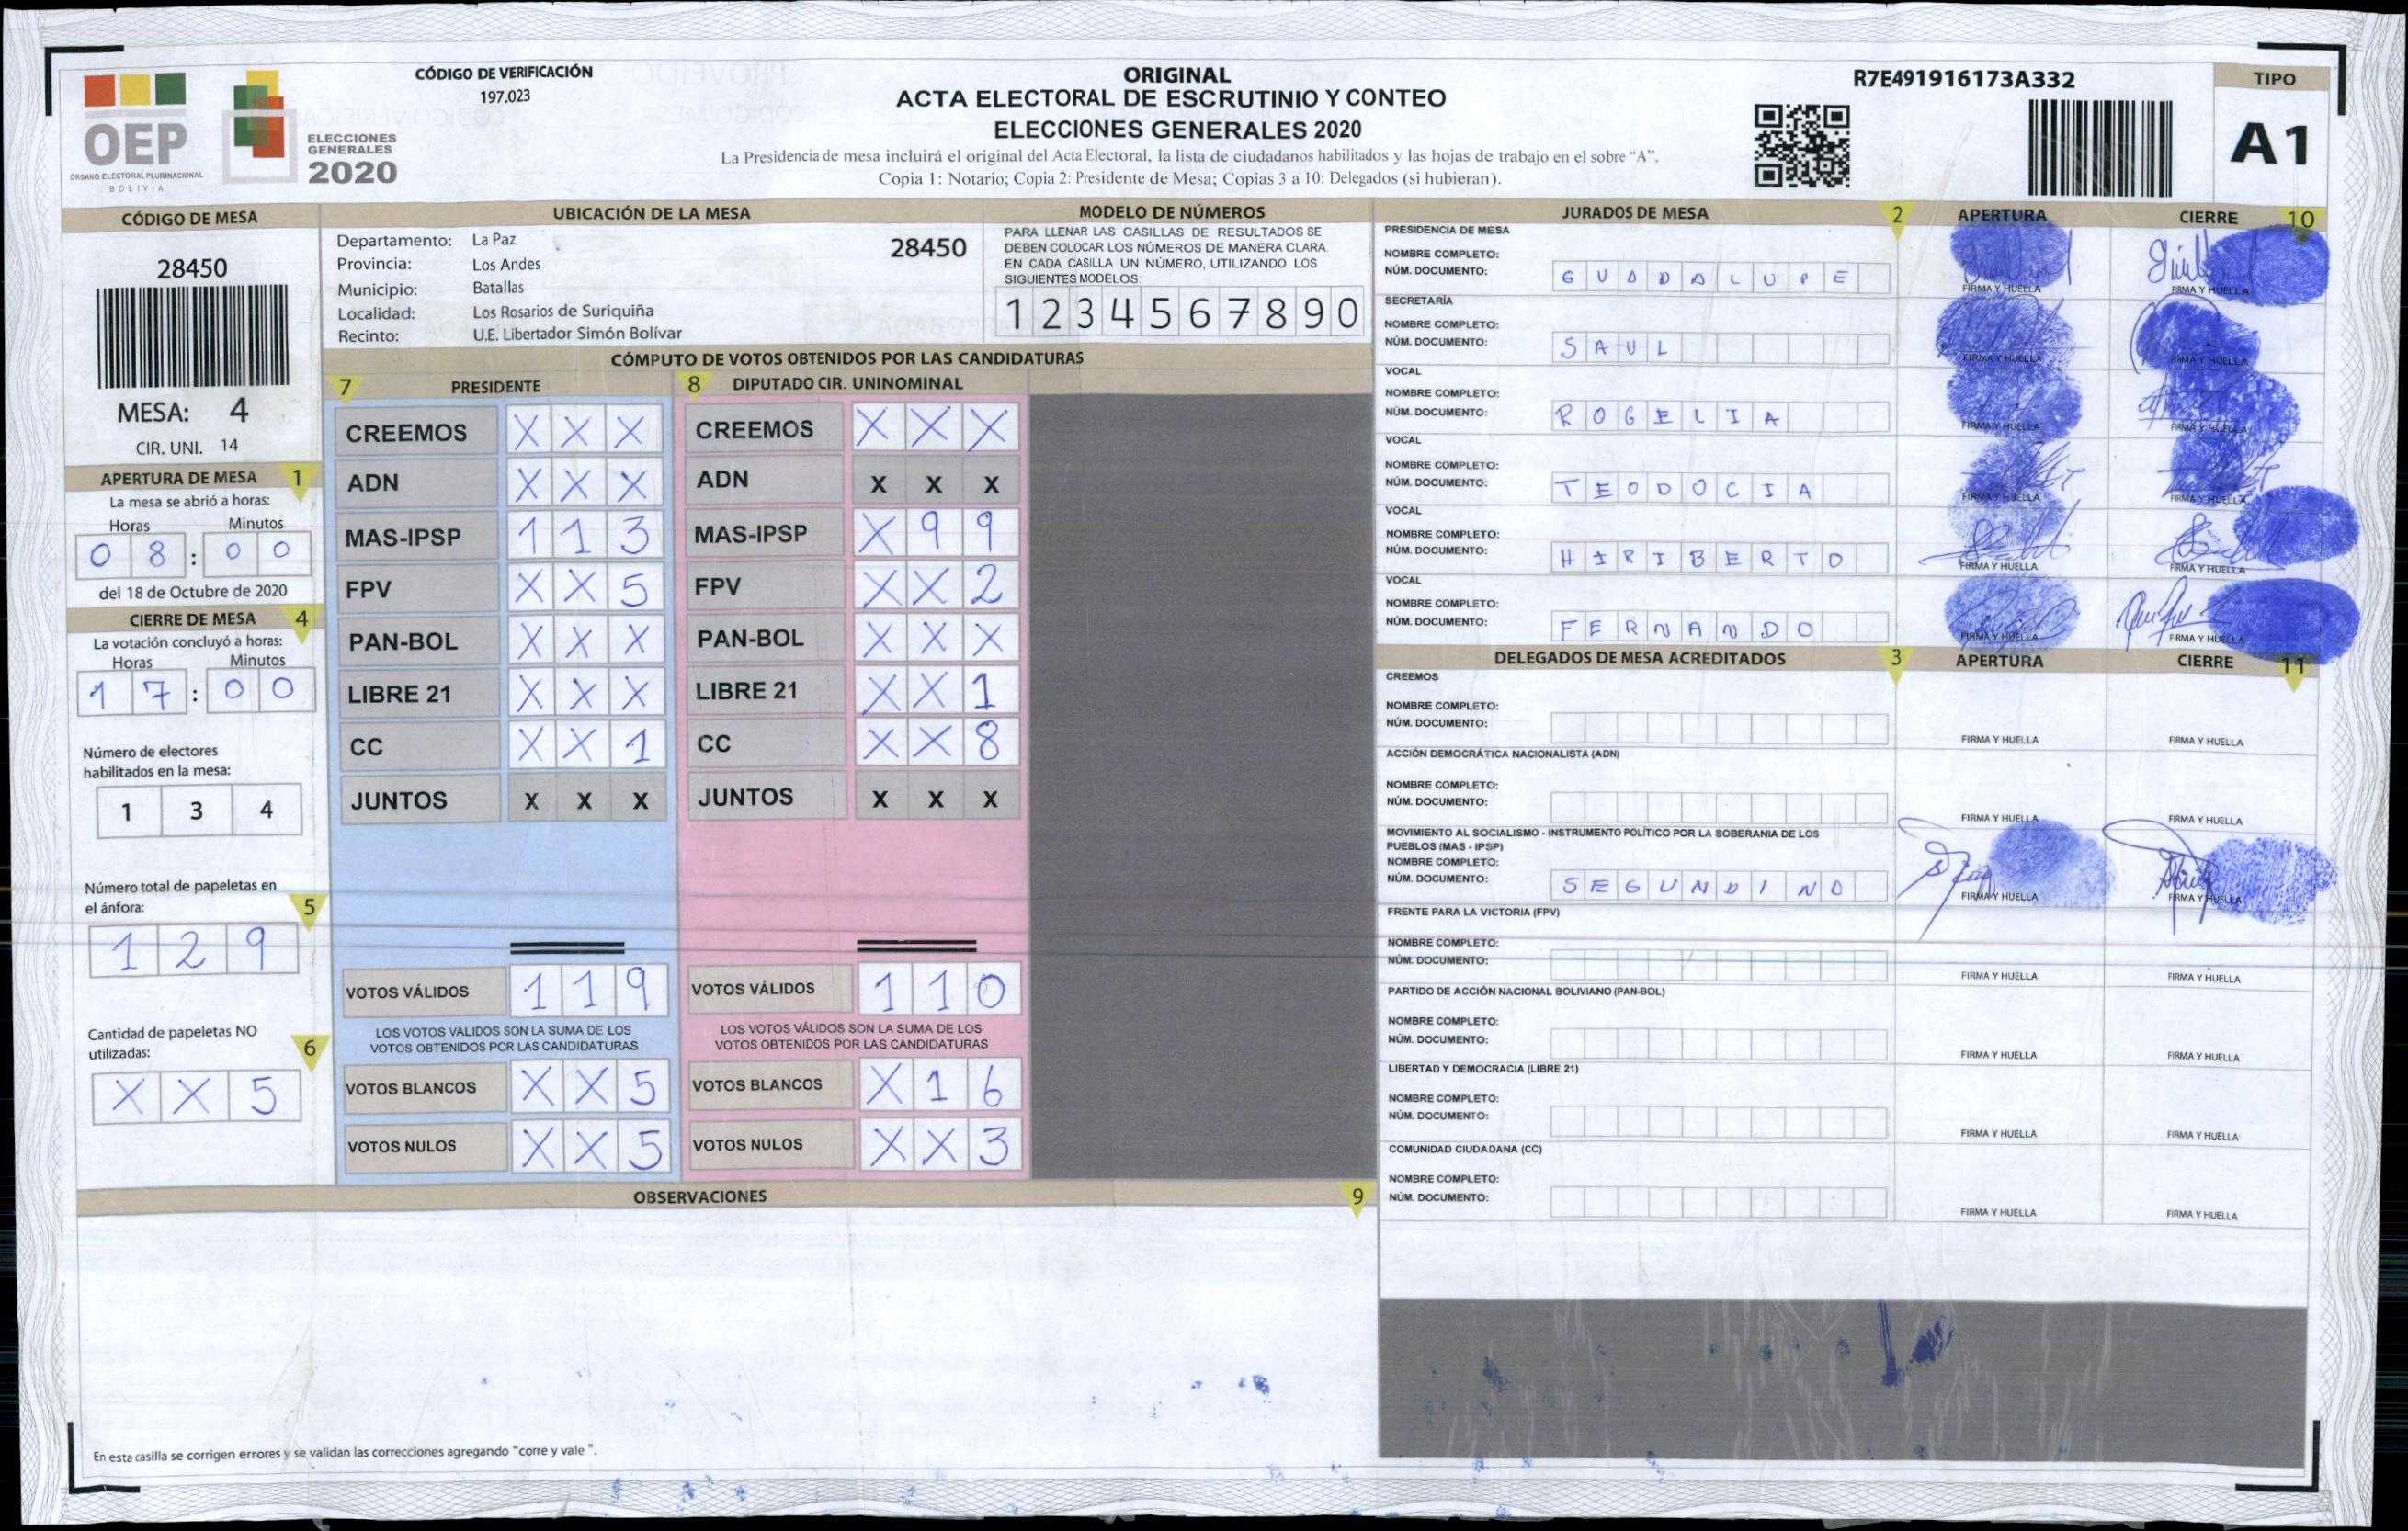 OEP
ÓRGANO ELECTORAL PLURINACIONAL
BOLIVIA
ELECCIONES
GENERALES
2020
CÓDIGO DE VERIFICACIÓN
197.023
ORIGINAL
ACTA ELECTORAL DE ESCRUTINIO Y CONTEO
ELECCIONES GENERALES 2020
La Presidencia de mesa incluirá el original del Acta Electoral, la lista de ciudadanos habilitados y las hojas de trabajo en el sobre “A”.
Copia 1: Notario; Copia 2: Presidente de Mesa; Copias 3 a 10: Delegados (si hubieran).
R7E491916173A332
TIPO
A1
CÓDIGO DE MESA
28450
MESA: 4
CIR. UNI. 14
APERTURA DE MESA 1
La mesa se abrió a horas:
Horas Minutos
0 8 : 0 0
del 18 de Octubre de 2020
CIERRE DE MESA 4
La votación concluyó a horas:
Horas Minutos
1 7 : 0 0
Número de electores
habilitados en la mesa:
1 3 4
Número total de papeletas en
el ánfora: 5
1 2 9
Cantidad de papeletas NO
utilizadas: 6
X X 5
UBICACIÓN DE LA MESA
Departamento: La Paz 28450
Provincia: Los Andes
Municipio: Batallas
Localidad: Los Rosarios de Suriquiña
Recinto: U.E. Libertador Simón Bolívar
MODELO DE NÚMEROS
PARA LLENAR LAS CASILLAS DE RESULTADOS SE
DEBEN COLOCAR LOS NÚMEROS DE MANERA CLARA.
EN CADA CASILLA UN NÚMERO, UTILIZANDO LOS
SIGUIENTES MODELOS:
1 2 3 4 5 6 7 8 9 0
CÓMPUTO DE VOTOS OBTENIDOS POR LAS CANDIDATURAS
7 PRESIDENTE
CREEMOS X X X
ADN X X X
MAS-IPSP 1 1 3
FPV X X 5
PAN-BOL X X X
LIBRE 21 X X X
CC X X 1
JUNTOS X X X
VOTOS VÁLIDOS 1 1 9
LOS VOTOS VÁLIDOS SON LA SUMA DE LOS
VOTOS OBTENIDOS POR LAS CANDIDATURAS
VOTOS BLANCOS X X 5
VOTOS NULOS X X 5
8 DIPUTADO CIR. UNINOMINAL
CREEMOS X X X
ADN X X X
MAS-IPSP X 9 9
FPV X X 2
PAN-BOL X X X
LIBRE 21 X X 1
CC X X 8
JUNTOS X X X
VOTOS VÁLIDOS 1 1 0
LOS VOTOS VÁLIDOS SON LA SUMA DE LOS
VOTOS OBTENIDOS POR LAS CANDIDATURAS
VOTOS BLANCOS X 1 6
VOTOS NULOS X X 3
OBSERVACIONES 9
En esta casilla se corrigen errores y se validan las correcciones agregando "corre y vale ".
JURADOS DE MESA 2 APERTURA CIERRE 10
PRESIDENCIA DE MESA
NOMBRE COMPLETO:
NÚM. DOCUMENTO: G U A D A L U P E
FIRMA Y HUELLA FIRMA Y HUELLA
SECRETARÍA
NOMBRE COMPLETO:
NÚM. DOCUMENTO: S A U L
FIRMA Y HUELLA FIRMA Y HUELLA
VOCAL
NOMBRE COMPLETO:
NÚM. DOCUMENTO: R O G E L I A
FIRMA Y HUELLA FIRMA Y HUELLA
VOCAL
NOMBRE COMPLETO:
NÚM. DOCUMENTO: T E O D O C I A
FIRMA Y HUELLA FIRMA Y HUELLA
VOCAL
NOMBRE COMPLETO:
NÚM. DOCUMENTO: H I R I B E R T O
FIRMA Y HUELLA FIRMA Y HUELLA
VOCAL
NOMBRE COMPLETO:
NÚM. DOCUMENTO: F E R N A N D O
FIRMA Y HUELLA FIRMA Y HUELLA
DELEGADOS DE MESA ACREDITADOS 3 APERTURA CIERRE 11
CREEMOS
NOMBRE COMPLETO:
NÚM. DOCUMENTO:
FIRMA Y HUELLA FIRMA Y HUELLA
ACCIÓN DEMOCRÁTICA NACIONALISTA (ADN)
NOMBRE COMPLETO:
NÚM. DOCUMENTO:
FIRMA Y HUELLA FIRMA Y HUELLA
MOVIMIENTO AL SOCIALISMO - INSTRUMENTO POLÍTICO POR LA SOBERANIA DE LOS
PUEBLOS (MAS - IPSP)
NOMBRE COMPLETO:
NÚM. DOCUMENTO: S E G U N D I N O
FIRMA Y HUELLA FIRMA Y HUELLA
FRENTE PARA LA VICTORIA (FPV)
NOMBRE COMPLETO:
NÚM. DOCUMENTO:
FIRMA Y HUELLA FIRMA Y HUELLA
PARTIDO DE ACCIÓN NACIONAL BOLIVIANO (PAN-BOL)
NOMBRE COMPLETO:
NÚM. DOCUMENTO:
FIRMA Y HUELLA FIRMA Y HUELLA
LIBERTAD Y DEMOCRACIA (LIBRE 21)
NOMBRE COMPLETO:
NÚM. DOCUMENTO:
FIRMA Y HUELLA FIRMA Y HUELLA
COMUNIDAD CIUDADANA (CC)
NOMBRE COMPLETO:
NÚM. DOCUMENTO:
FIRMA Y HUELLA FIRMA Y HUELLA